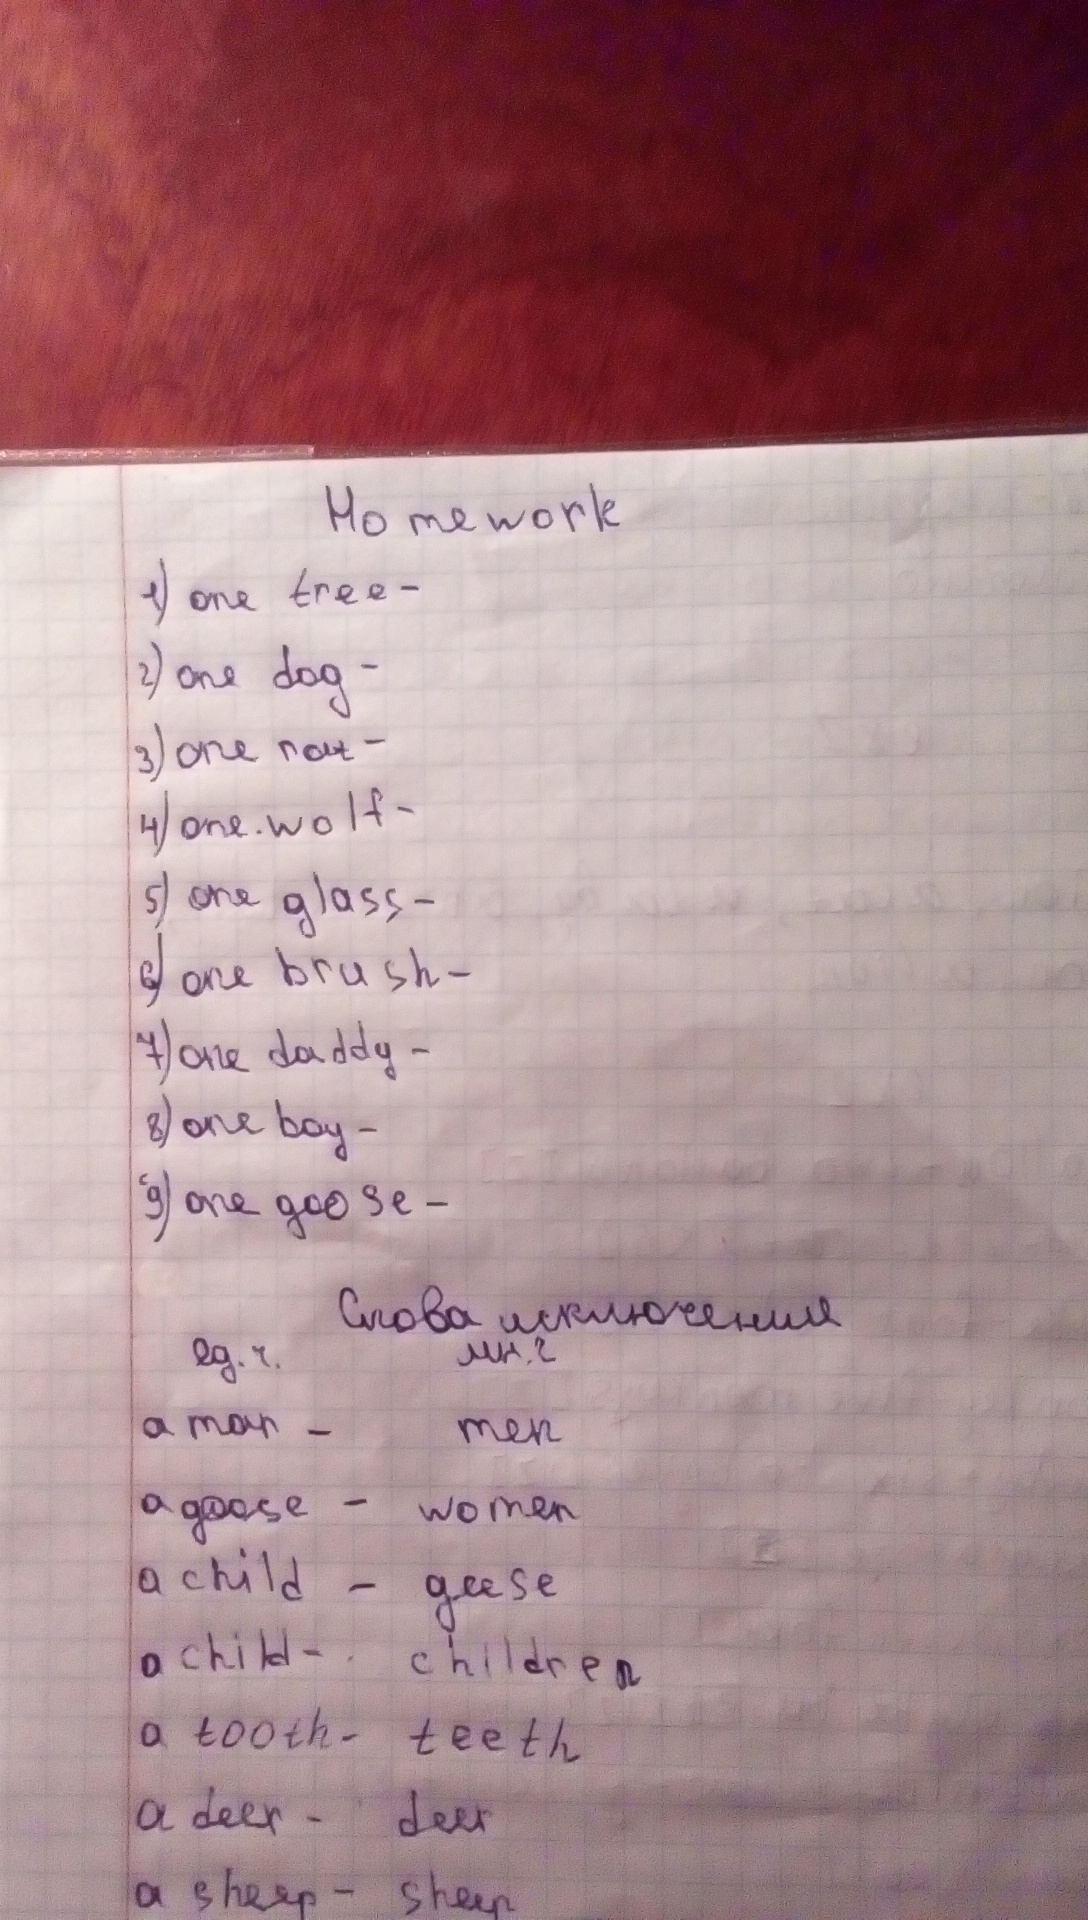 Homework
1) one tree -
2) one dog -
3) one rat -
4) one wolf -
5) one glass -
6) one brush -
7) one daddy -
8) one boy -
9) one goose -
Слова исключения
ед. ч. мн. ч
a man - men
a goose - women
a child - geese
a child - children
a tooth - teeth
a deer - deer
a sheep - sheep